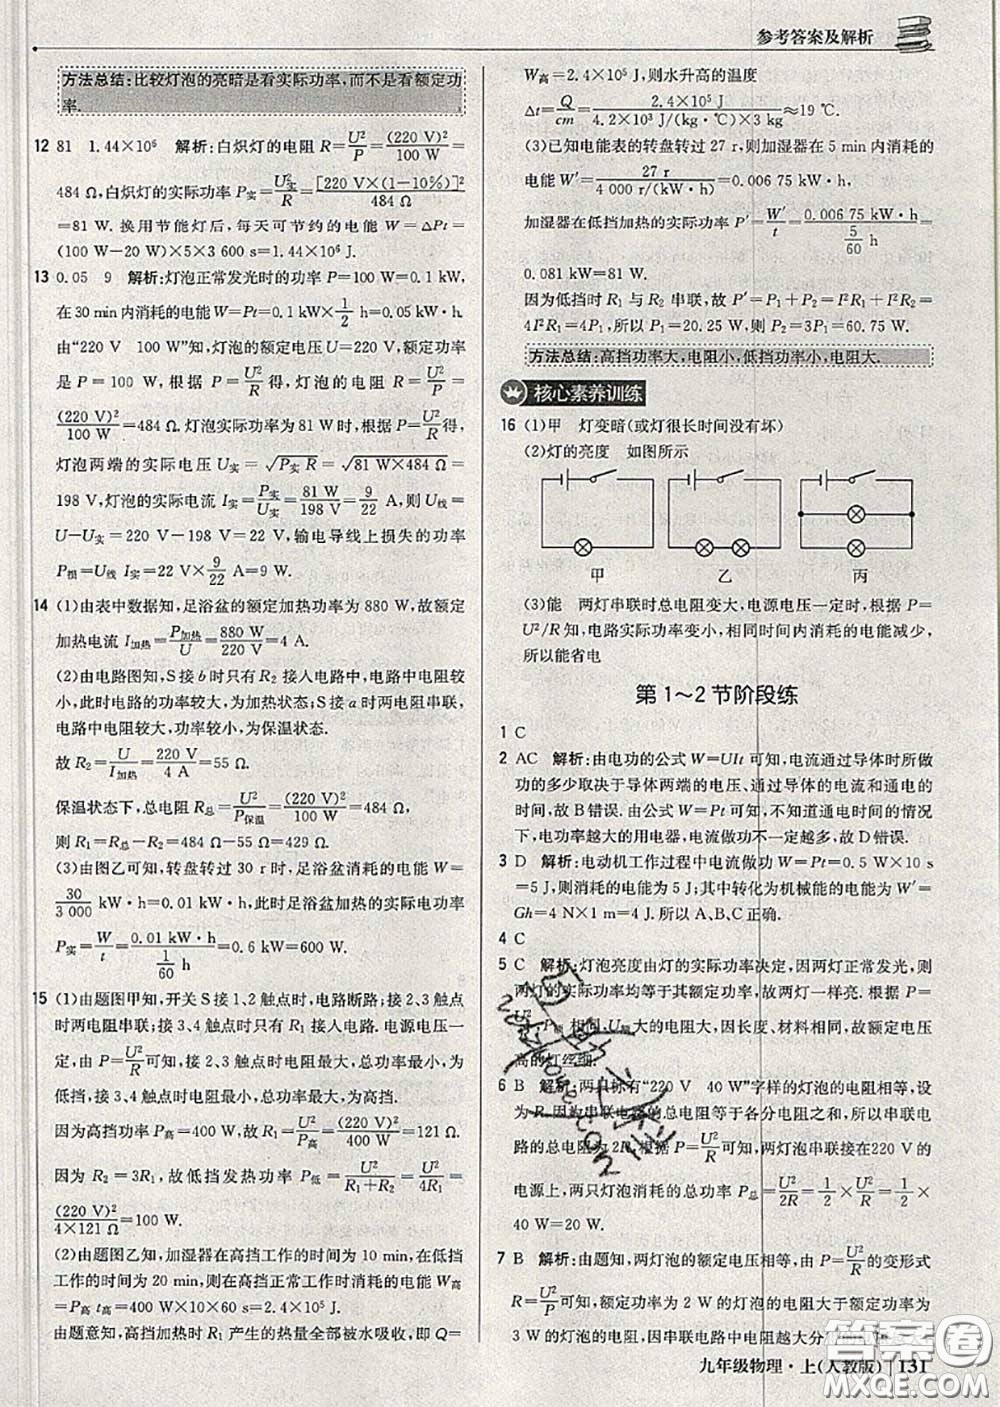 参考答案及解析
方法总结:比较灯泡的亮暗是看实际功率,而不是看额定功
率.
12 81 1.44×10⁶ 解析:白炽灯的电阻 R=U²/P=(220 V)²/100 W=
484 Ω,白炽灯的实际功率 P实=U实²/R=[220 V×(1-10%)]²/484 Ω
=81 W. 换用节能灯后,每天可节约的电能 W=ΔPt=
(100 W-20 W)×5×3 600 s=1.44×10⁶ J.
13 0.05 9 解析:灯泡正常发光时的功率 P=100 W=0.1 kW,
在 30 min 内消耗的电能 W=Pt=0.1 kW×1/2 h=0.05 kW·h.
由“220 V 100 W”知,灯泡的额定电压 U=220 V,额定功率
是 P=100 W,根据 P=U²/R 得,灯泡的电阻 R=U²/P=
(220 V)²/100 W=484 Ω.灯泡实际功率为 81 W 时,根据 P=U²/R 得,
灯泡两端的实际电压 U实=√(P实R)=√(81 W×484 Ω)=
198 V,灯泡的实际电流 I实=P实/U实=81 W/198 V=9/22 A,则 U线=
U-U实=220 V-198 V=22 V,输电导线上损失的功率
P损=U线 I实=22 V×9/22 A=9 W.
14 (1)由表中数据知,足浴盆的额定加热功率为 880 W,故额定
加热电流 I加热=P加热/U=880 W/220 V=4 A.
(2)由电路图知,S 接 b 时只有 R2 接入电路中,电路中电阻
较小,功率较大,为加热状态.S 接 a 时两电阻串联,
电路中电阻较大,功率较小,为保温状态.
故 R2=U/I加热=220 V/4 A=55 Ω.
保温状态下,总电阻 R总=U²/P保温=(220 V)²/100 W=484 Ω,
则 R1=R总-R2=484 Ω-55 Ω=429 Ω.
(3)由图乙可知,转盘转过 30 r 时,足浴盆消耗的电能 W=
30/3 000 kW·h=0.01 kW·h,此时足浴盆加热的实际电功率
P实=W/t=0.01 kW·h/(1/60 h)=0.6 kW=600 W.
15 (1)由题图甲知,开关 S 接 1、2 触点时,电路断路;接 2、3 触点
时两电阻串联;接 3、4 触点时只有 R1 接入电路. 电源电压一
定,由 P=U²/R 可知,接 2、3 触点时电阻最大,总功率最小,
为低挡.接 3、4 触点时电阻最小,总功率最大,为高挡.
因为高挡功率 P高=400 W,故 R1=U²/P高=(220 V)²/400 W=121 Ω.
因为 R2=3R1,故低挡发热功率 P低=U²/(R1+R2)=U²/4R1=
(220 V)²/4×121 Ω=100 W.
(2)由题图乙知,加湿器在高挡工作的时间为 10 min,在低挡
工作时间为 20 min,则在高挡正常工作时消耗的电能 W高
=P高 t高=400 W×10×60 s=2.4×10⁵ J.
由题意知,高挡加热时 R1 产生的热量全部被水吸收,即 Q=
W高=2.4×10⁵ J,则水升高的温度
Δt=Q/cm=2.4×10⁵ J/4.2×10³ J/(kg·℃)×3 kg≈19 ℃.
(3)已知电能表的转盘转过 27 r,则加湿器在 5 min 内消耗的
电能 W′=27 r/4 000 r/(kW·h)=0.006 75 kW·h,
加湿器在低挡加热的实际功率 P′=W′/t=0.006 75 kW·h/(5/60 h)=
0.081 kW=81 W.
因为低挡时 R1 与 R2 串联,故 P′=P1+P2=I²R1+I²R2=
4I²R1=4P1,所以 P1=20.25 W,则 P2=3P1=60.75 W.
方法总结:高挡功率大,电阻小,低挡功率小,电阻大.
核心素养训练
16 (1)甲 灯变暗(或灯很长时间没有坏)
(2)灯的亮度 如图所示
甲 乙 丙
(3)能 两灯串联时总电阻变大,电源电压一定时,根据 P=
U²/R 知,电路实际功率变小,相同时间内消耗的电能减少,
所以能省电
第 1～2 节阶段练
1 C
2 AC 解析:由电功的公式 W=UIt 知,电流通过导体时所做
功的多少取决于导体两端的电压、通过导体的电流和通电的
时间,故 B 错误. 由公式 W=Pt 可知,不知道通电时间的情况
下,电功率越大的用电器,电流做功不一定越多,故 D 错误.
3 D 解析:电动机工作过程中电流做功 W=Pt=0.5 W×10 s
=5 J,则消耗的电能为 5 J;其中转化为机械能的电能为 W′=
Gh=4 N×1 m=4 J.所以 A、B、C 正确.
4 C
5 C 解析:灯泡亮度由灯的实际功率决定,因两灯正常发光,则
两灯的实际功率均等于其额定功率,故两灯一样亮. 根据 R=
P额 相同,U额 大的电阻大,因长度、材料相同,故额定电压
高的灯丝细.
6 B 解析:两只标有“220 V 40 W”字样的灯泡的电阻相等,设
为 R.因为串联电路的总电阻等于各分电阻之和,所以串联电
路的总电阻为 2R.根据 P=U²/R 可知,两灯泡串联接在220 V 的
电源上,两只灯泡消耗的总功率 P总=U²/2R=1/2×U²/R=1/2×
40 W=20 W.
7 B 解析:由题知,两灯泡的额定电压相等,由 P=U²/R 的变形式
R=U²/P 可知,额定功率为 2 W 的灯泡的电阻大于额定功率为
3 W 的灯泡的电阻,因串联电路中电阻越大分
九年级物理·上(人教版) 131
答案圈
MXQE.COM